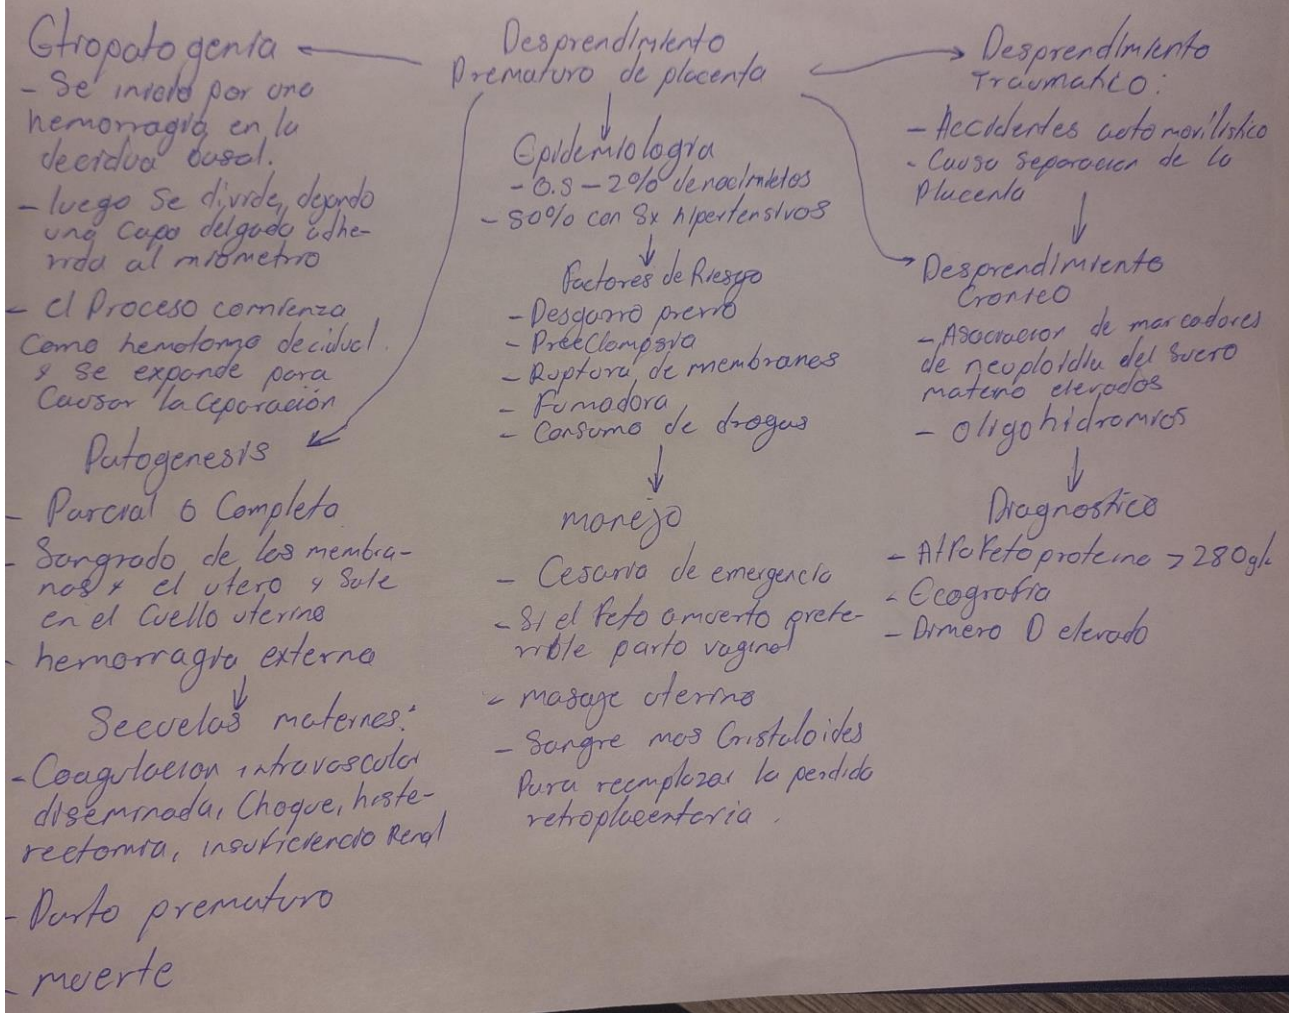 Etiopatogenia
- Se inicia por una
hemorragia en la
decidua basal.
- luego se divide, dejando
una capa delgada adhe-
rida al miometrio
- el Proceso comienza
Como hemotoma decidual
y se expande para
Causar la ceparación
Patogenesis
- Parcial o Completo
- Sangrado de las membra-
nas y el utero y Sale
en el Cuello uterino
- hemorragia externa
Secuelas maternas:
- Coagulacion intravascular
diseminada, Choque, histe-
rectomia, insuficiencia Renal
- Parto prematuro
- muerte
Desprendimiento
Prematuro de placenta
Epidemiologia
- 0.5 - 2% de nacimietos
- 50% con Sx hipertensivos
Factores de Riesgo
- Desgarro previo
- PreeClampsia
- Ruptura de membranas
- Fumadora
- Consumo de drogas
manejo
- Cesaria de emergencia
- Si el feto a muerto prefe-
rible parto vaginal
- masaje uterino
- Sangre mas Cristaloides
Para reemplazar la perdida
retroplacentaria.
Desprendimiento
Traumatico:
- Accidentes automovilistico
- Causa Separacion de la
Placenta
Desprendimiento
Cronico
- Asociacion de marcadores
de neuploidia del Suero
materno elevados
- oligohidromios
Diagnostico
- Alfa feto proteina > 280 g/L
- Ecografia
- Dimero D elevado